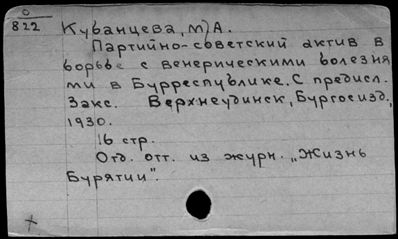 0
822
Кубанцева, М. А.
Партийно-советский актив в
борьбе с венерическими болезня
ми в Бурреспублике. С предисл.
Закс. Верхнеудинск, Бургосизд.,
1930.
16 стр.
Отд. отт. из журн. „Жизнь
Бурятии".
+